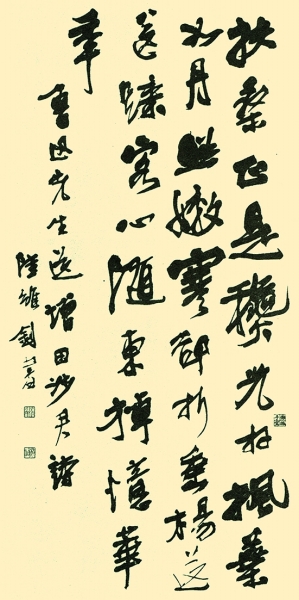 扶桑正是龝光好楓葉
如丹照嫩寒卻折垂楊送
送歸客心隨東棹憶華
年
魯迅先生送增田涉君詩
陸維釗